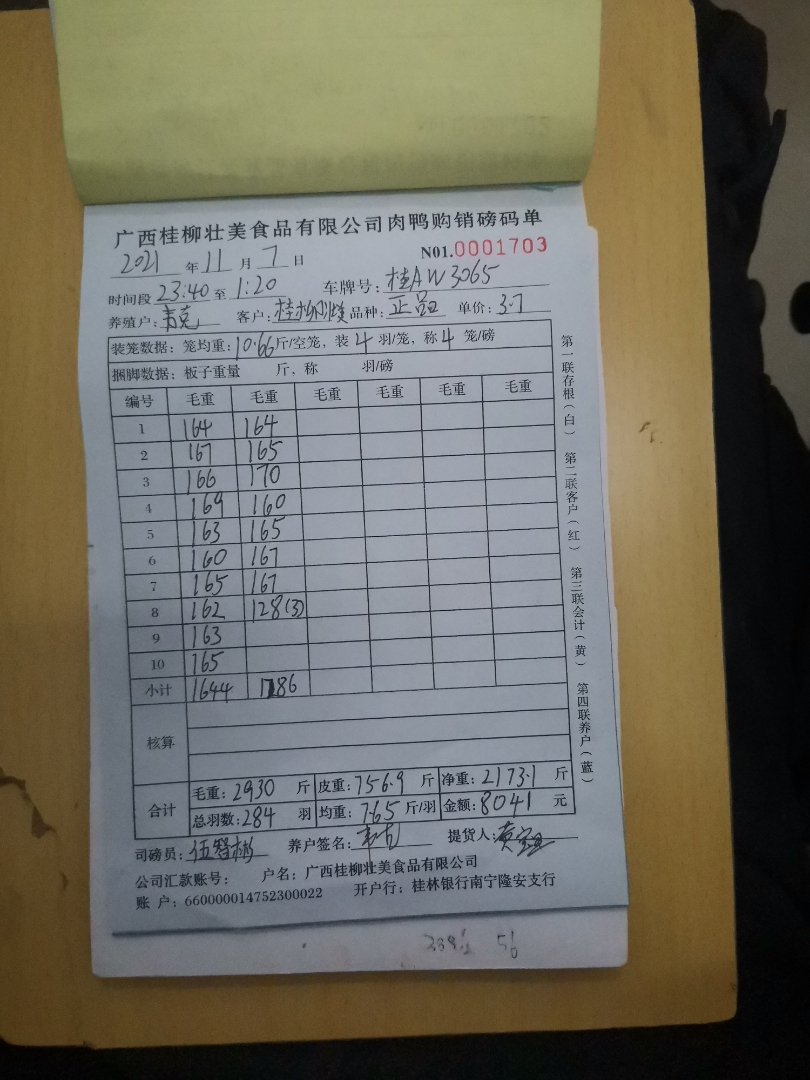 广西桂柳壮美食品有限公司肉鸭购销磅码单
2021 年 11 月 7 日 N01.0001703
时间段 23:40 至 1:20 车牌号: 桂AW3065
养殖户: 客户: 品种: 正品 单价: 3.7
装笼数据: 笼均重: 10.66 斤/空笼, 装 4 羽/笼, 称 4 笼/磅
捆脚数据: 板子重量 斤, 称 羽/磅
编号 毛重 毛重 毛重 毛重 毛重 毛重
1 164 164
2 167 165
3 166 170
4 169 160
5 163 165
6 160 167
7 165 167
8 162 128(3)
9 163
10 165
小计 1644 1286
核算
合计
毛重: 2930 斤 皮重: 756.9 斤 净重: 2173.1 斤
总羽数: 284 羽 均重: 7.65 斤/羽 金额: 8041 元
司磅员: 伍智彬 养户签名: 提货人:
公司汇款账号: 户名: 广西桂柳壮美食品有限公司
账 户: 660000014752300022 开户行: 桂林银行南宁隆安支行
第一联存根(白) 第二联客户(红) 第三联会计(黄) 第四联养户(蓝)